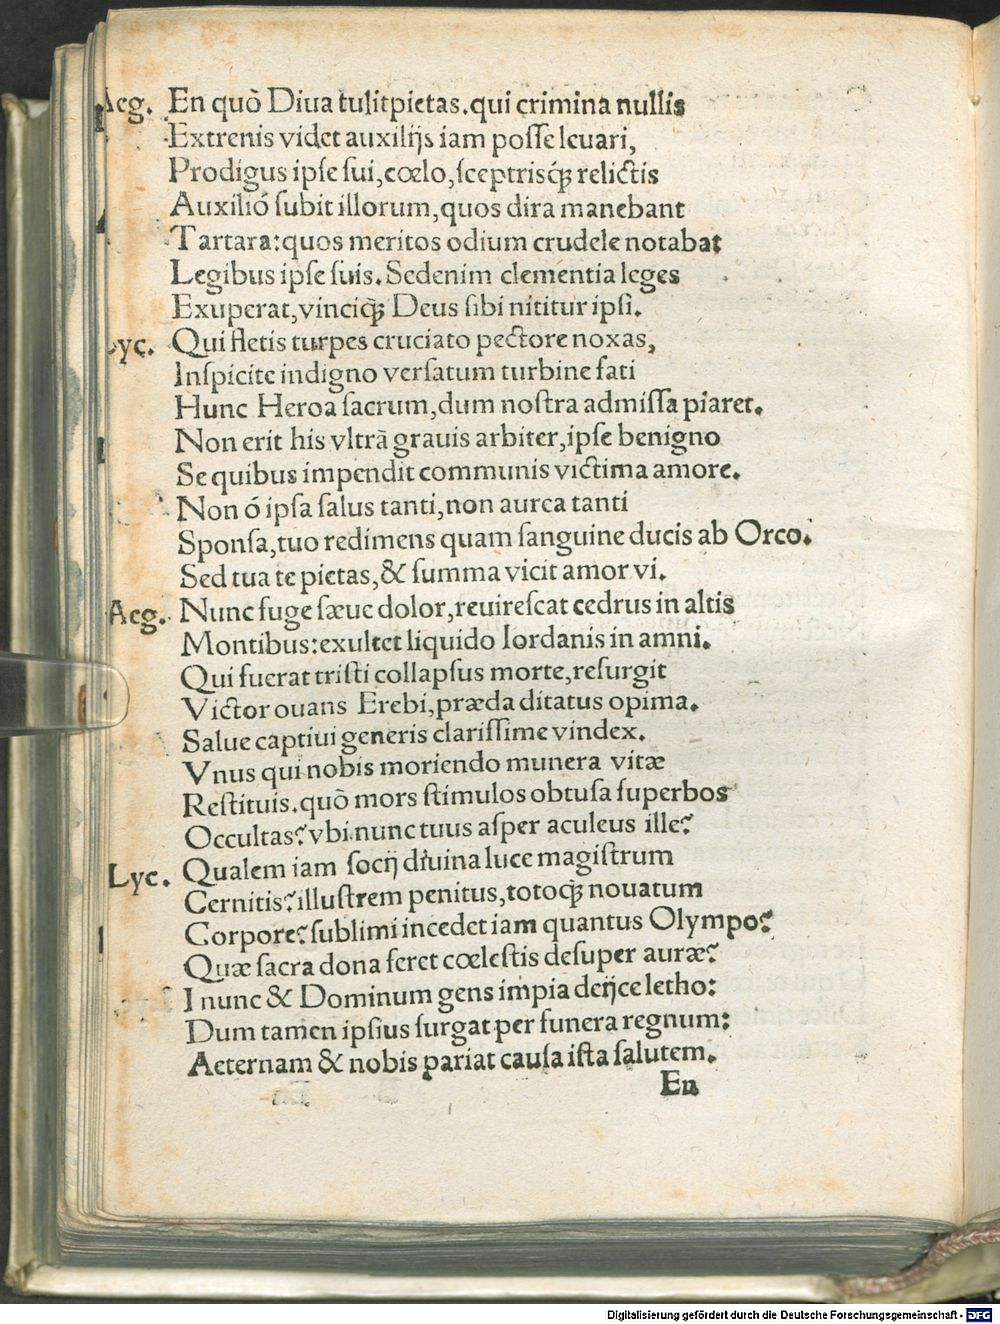 Aeg. En quò Diua tulit pietas. qui crimina nullis
Extrenis videt auxilijs iam posse leuari,
Prodigus ipse sui, cœlo, sceptrisq́; relictis
Auxilió subit illorum, quos dira manebant
Tartara: quos meritos odium crudele notabat
Legibus ipse suis. Sed enim clementia leges
Exuperat, vinciq́; Deus sibi nititur ipsi.
Lyc. Qui fletis turpes cruciato pectore noxas,
Inspicite indigno versatum turbine fati
Hunc Heroa sacrum, dum nostra admissa piaret.
Non erit his vltrà grauis arbiter, ipse benigno
Se quibus impendit communis victima amore.
Non ó ipsa salus tanti, non aurea tanti
Sponsa, tuo redimens quam sanguine ducis ab Orco.
Sed tua te pietas, & summa vicit amor vi.
Aeg. Nunc fuge sæue dolor, reuirescat cedrus in altis
Montibus: exultet liquido Iordanis in amni.
Qui fuerat tristi collapsus morte, resurgit
Victor ouans Erebi, præda ditatus opima.
Salue captiui generis clarissime vindex.
Vnus qui nobis moriendo munera vitæ
Restituis. quò mors stimulos obtusa superbos
Occultas? vbi nunc tuus asper aculeus ille?
Lyc. Qualem iam socij diuina luce magistrum
Cernitis? illustrem penitus, totoq́; nouatum
Corpore? sublimi incedet iam quantus Olympo?
Quæ sacra dona feret cœlestis desuper auræ?
I nunc & Dominum gens impia deijce letho:
Dum tamen ipsius surgat per funera regnum:
Aeternam & nobis pariat causa ista salutem.
En
Digitalisierung gefördert durch die Deutsche Forschungsgemeinschaft - DFG